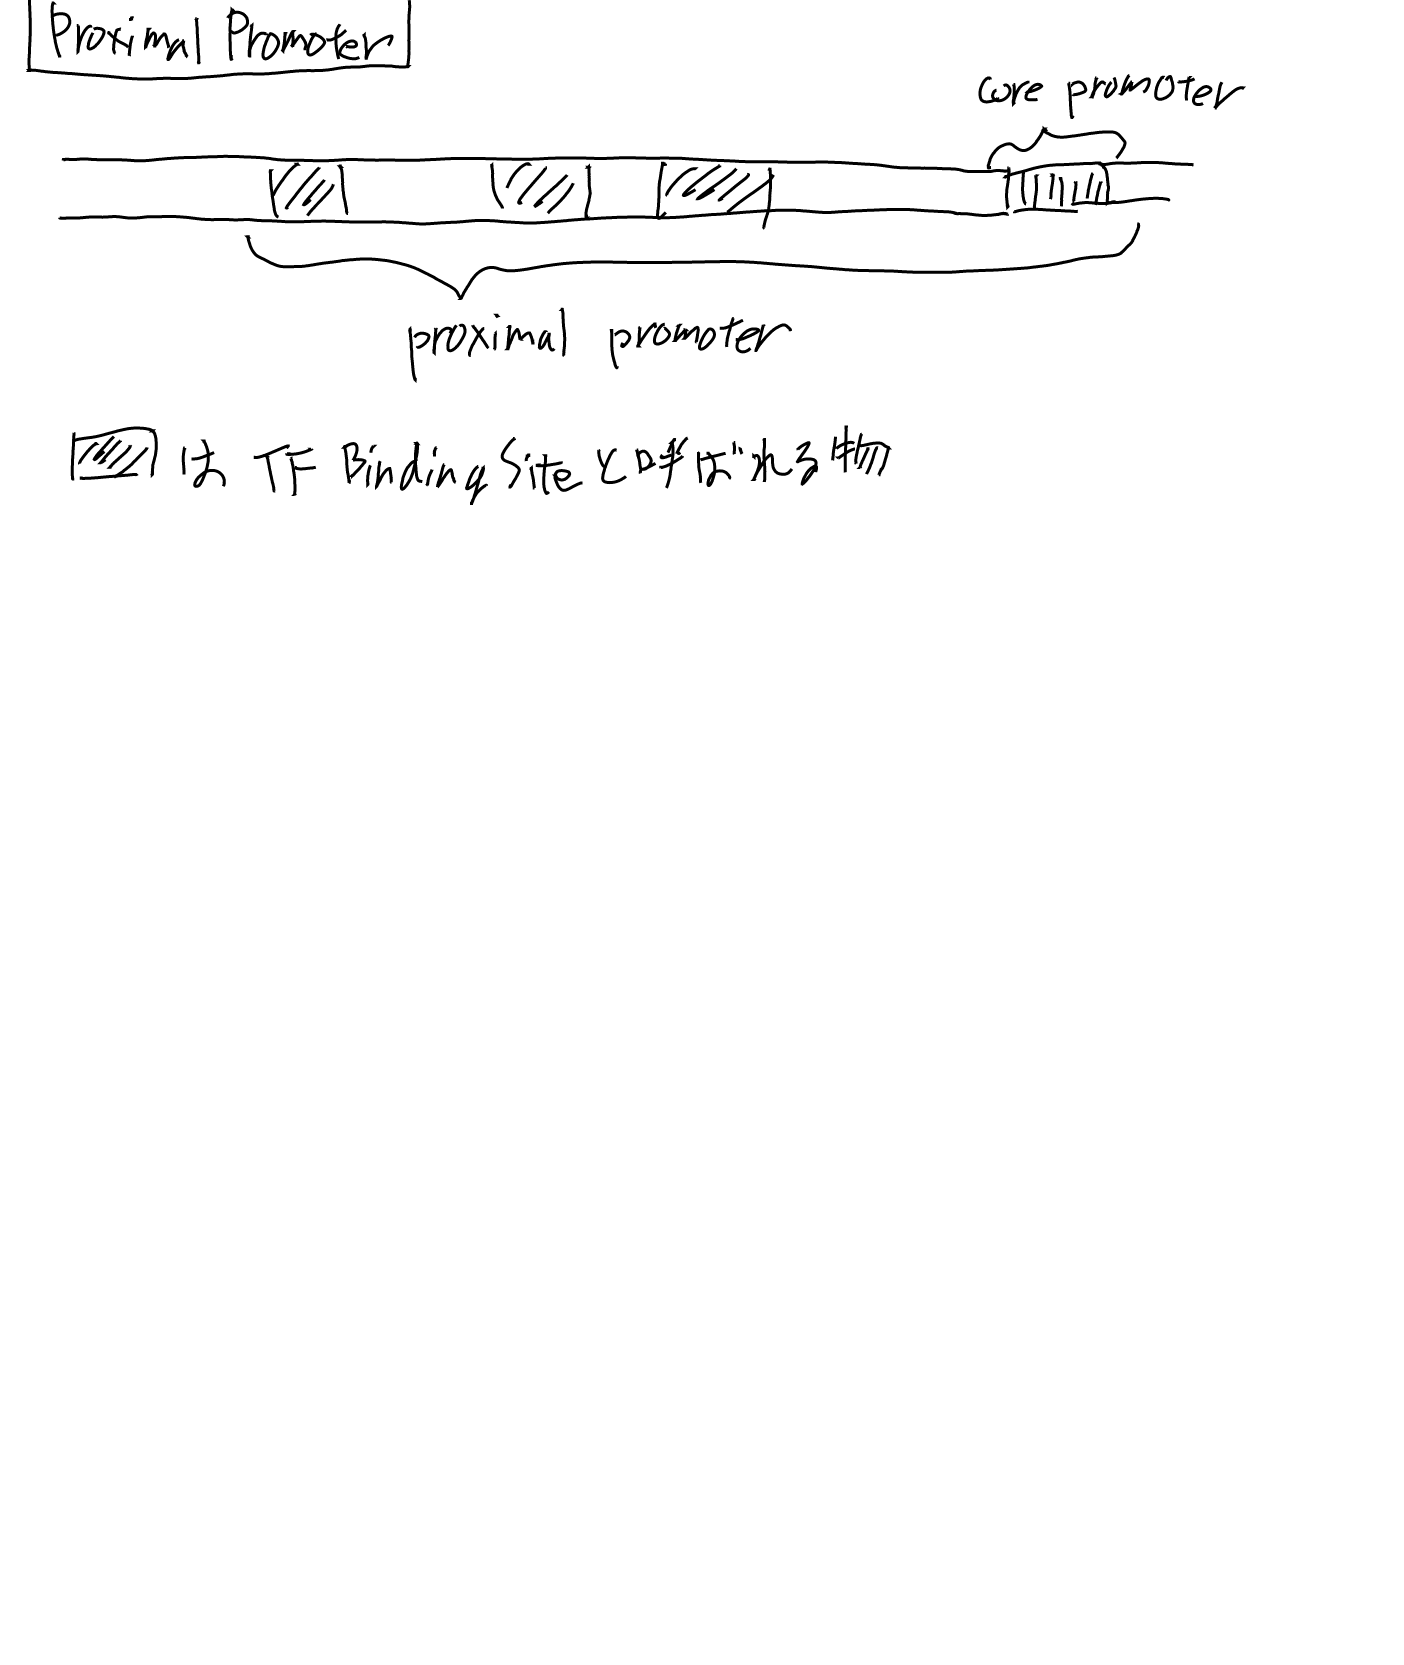 Proximal Promoter
core promoter
proximal promoter
は TF Binding Siteと呼ばれる物